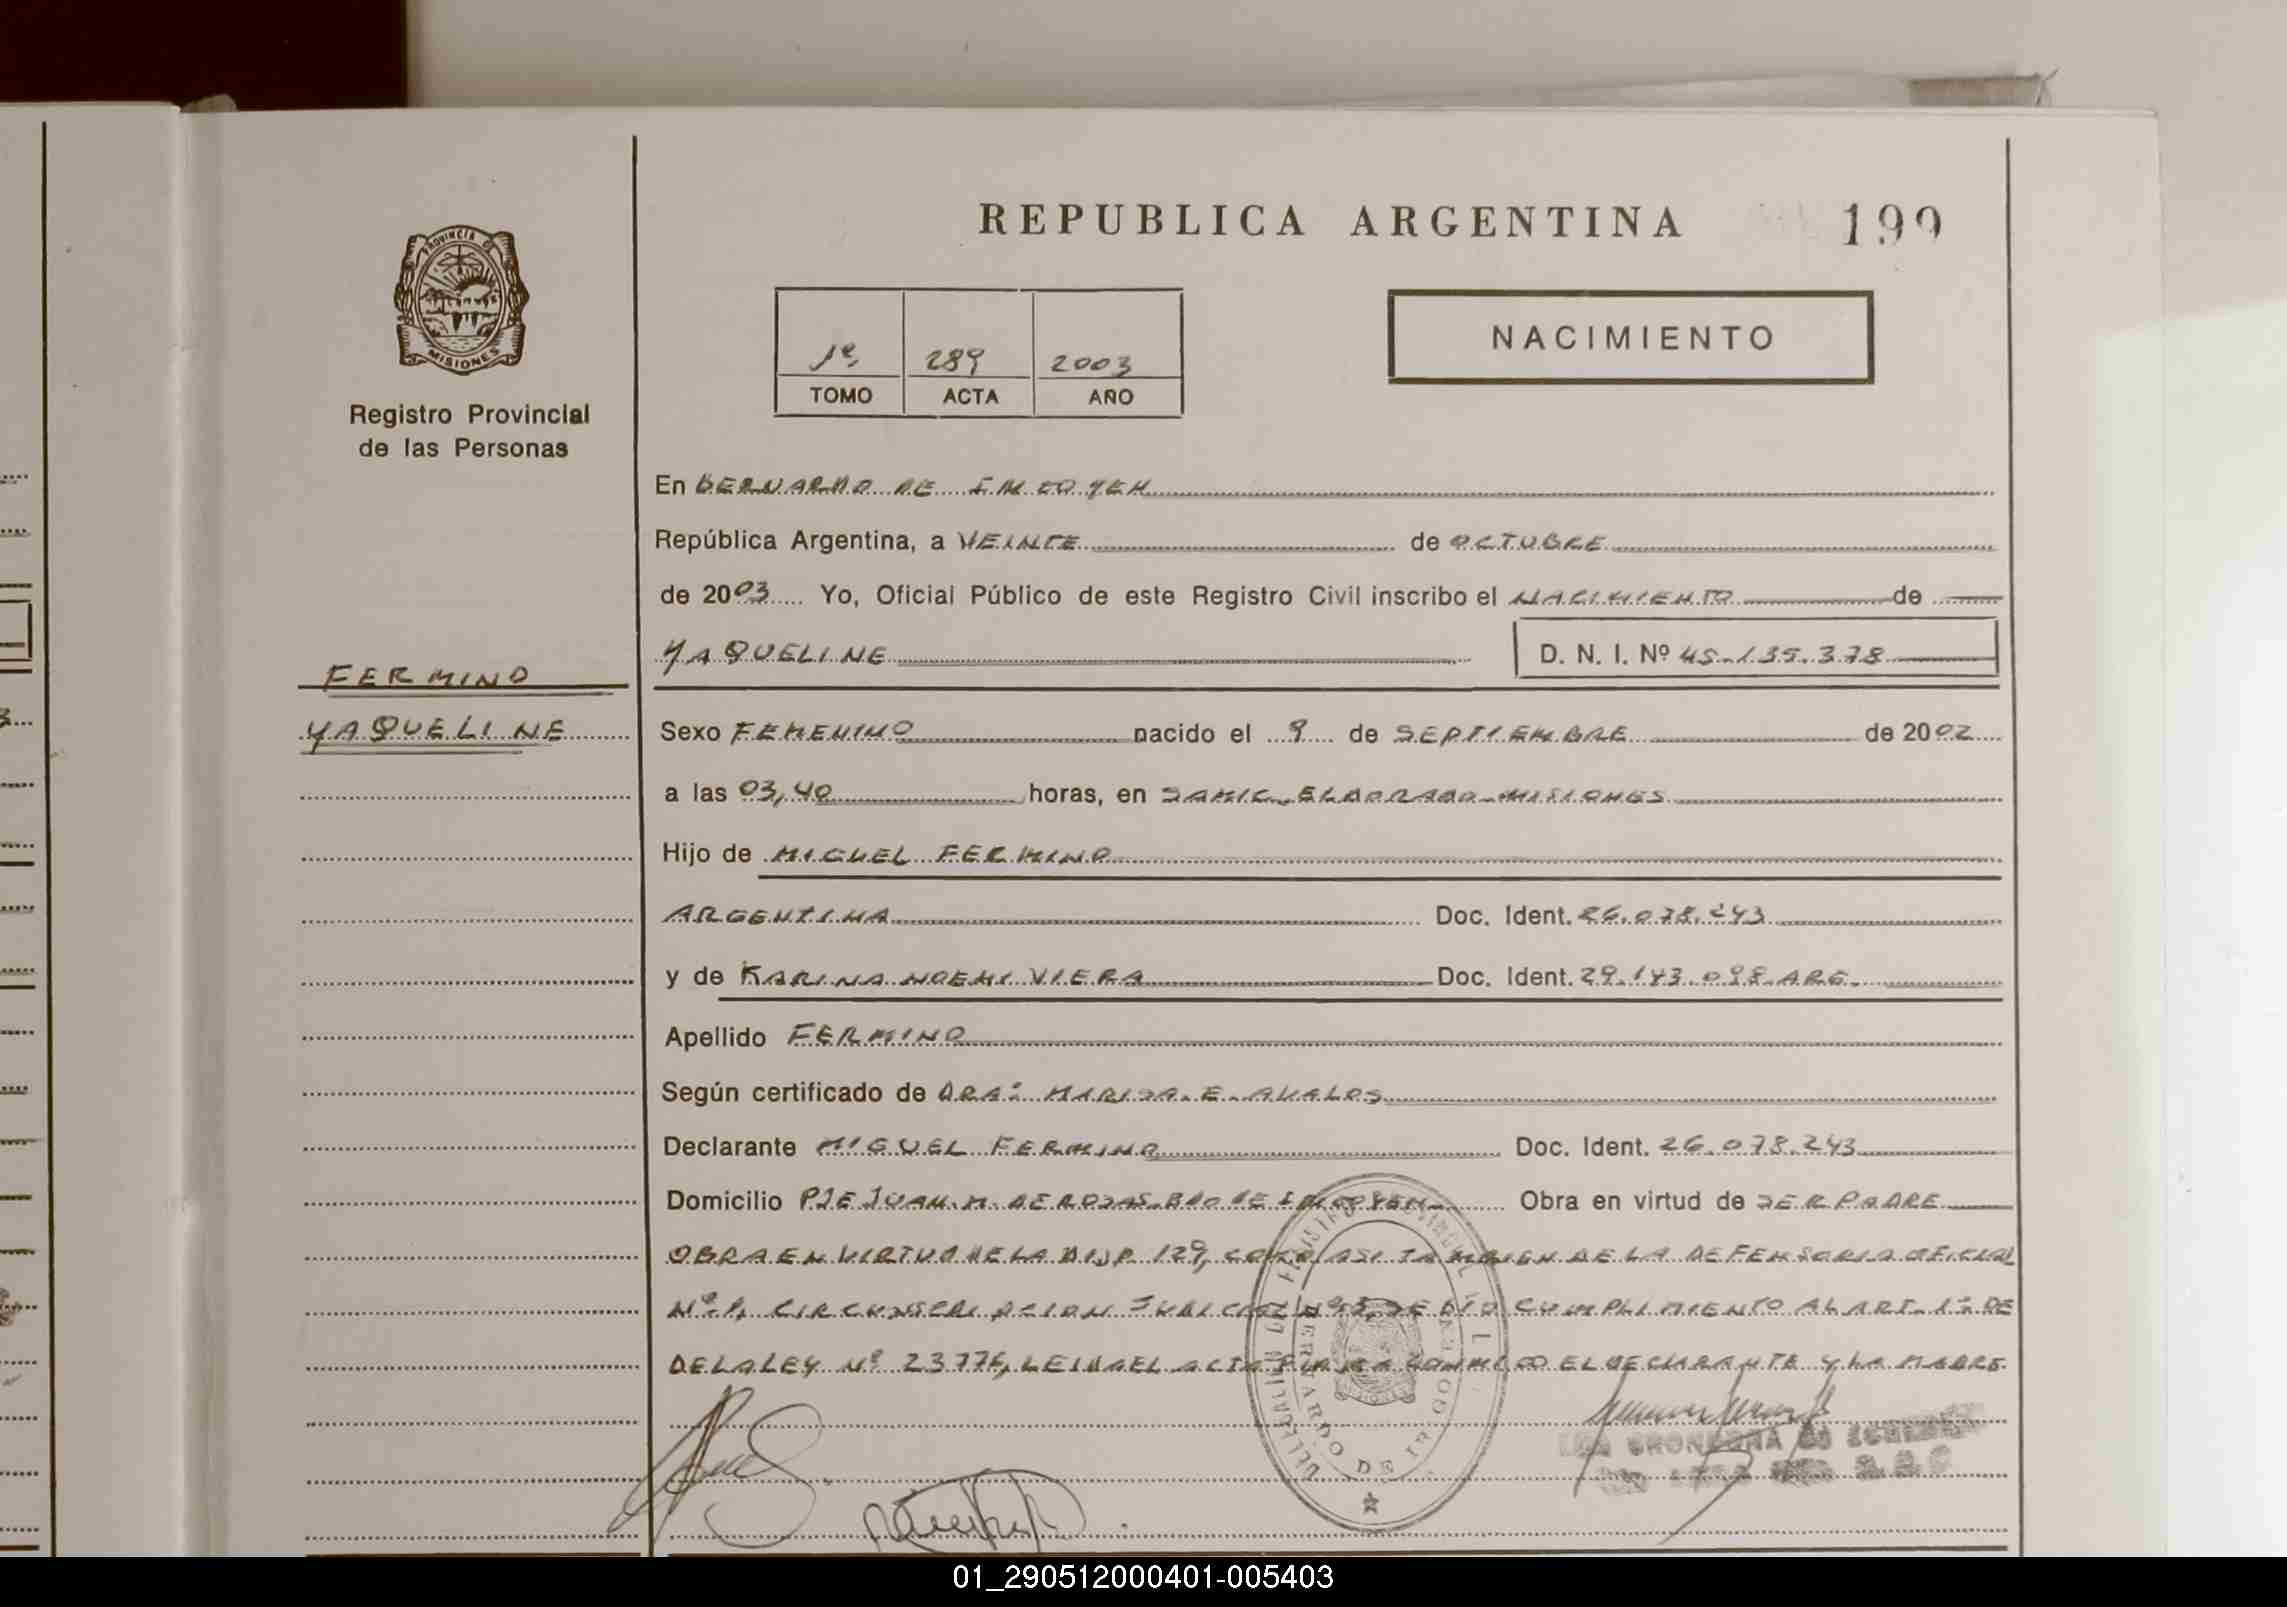 REPUBLICA ARGENTINA 199
PROVINCIA DE
MISIONES
Registro Provincial
de las Personas
1º 289 2003
TOMO ACTA AÑO
NACIMIENTO
En BERNARDO DE IRIGOYEN
República Argentina, a VEINTE de OCTUBRE
de 2003 Yo, Oficial Público de este Registro Civil inscribo el NACIMIENTO de
YAQUELINE D. N. I. Nº 45.135.378
FERMINO
YAQUELINE
Sexo FEMENINO nacido el 9 de SEPTIEMBRE de 2002
a las 03,40 horas, en SAMIC-ELDORADO-MISIONES
Hijo de MIGUEL FERMINO
ARGENTINA Doc. Ident. 26.078.243
y de KARINA NOEMI VIERA Doc. Ident. 29.143.098-ARG.
Apellido FERMINO
Según certificado de DRA: MARISA-E-AVALOS
Declarante MIGUEL FERMINO Doc. Ident. 26.078.243
Domicilio PJE JUAN.M. DE ROSAS-BDO DE IRIGOYEN- Obra en virtud de SER PADRE
OBRA EN VIRTUD DE LA DISP. 129, COMO ASI TAMBIEN DE LA DEFENSORIA OFICIAL
Nº 1, CIRCUNSCRIPCION JUDICIAL Nº 3, SE DIO CUMPLIMIENTO AL ART. 1º DE
DE LA LEY Nº 23776, LEIDA EL ACTA FIRMA CONMIGO EL DECLARANTE Y LA MADRE
DELEGACION DEL REGISTRO PROVINCIAL
BERNARDO DE IRIGOYEN
01_290512000401-005403